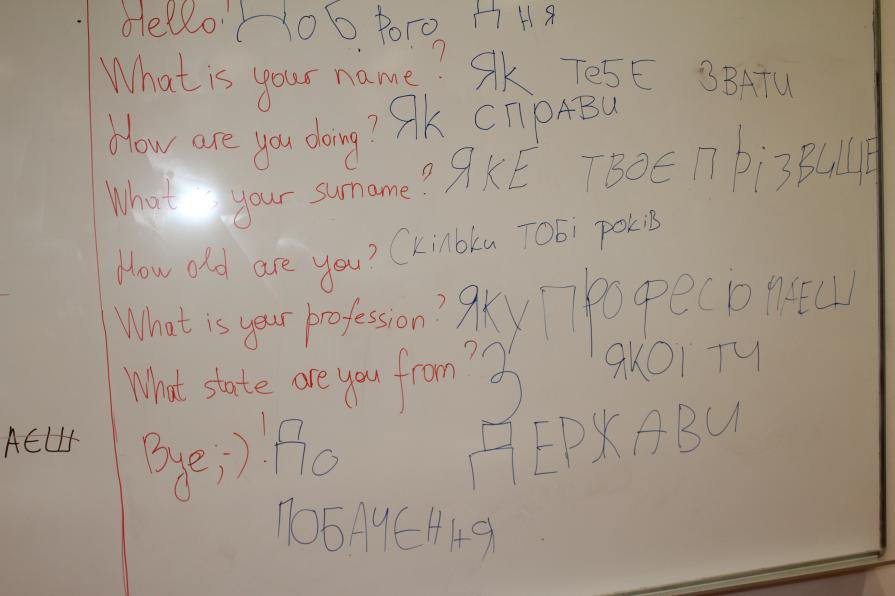 Hello! Доброго Дня
What is your name? Як Тебе ЗВАТИ
How are you doing? Як СПРАВИ
What is your surname? ЯКЕ ТВОЄ ПРІЗВИЩЕ
How old are you? Скільки ТОБІ років
What is your profession? ЯКУ ПРОФЕСІЮ МАЕШ
What state are you from? З ЯКОЇ ТИ
ДЕРЖАВИ
Bye ;-)! До
ПОБАЧЕННЯ
АЄШ